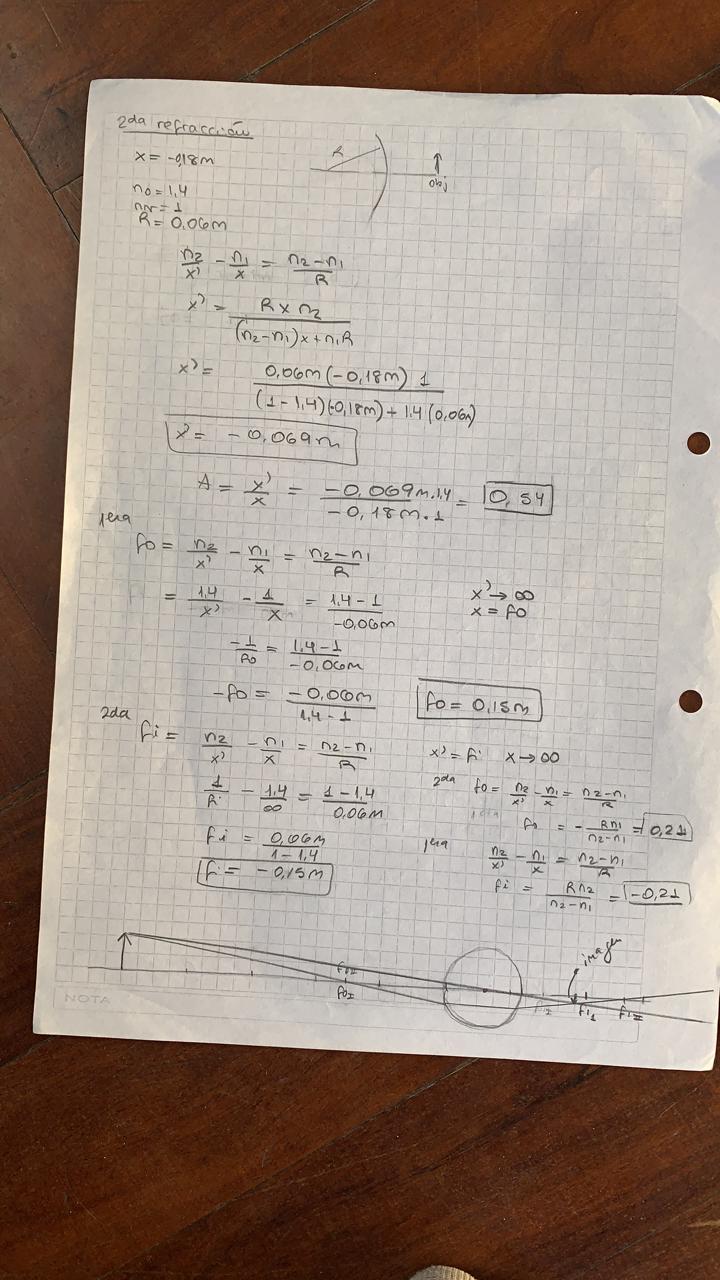 2da refracción
x = -0,18m
R
obj
no = 1,4
nr = 1
R = 0.06m
n2/x' - n1/x = n2-n1/R
x' = R x n2/(n2-n1)x + n1R
x' = 0,06m (-0,18m) 1/(1-1,4)(-0,18m) + 1.4(0,06m)
x' = -0,069m
A = x'/x = -0,069m.1,4/-0,18m.1 = 0,54
1era
fo = n2/x' - n1/x = n2-n1/R
= 1,4/x' - 1/x = 1,4-1/-0,06m
x' → ∞
x = fo
-1/fo = 1,4-1/-0,06m
-fo = -0,06m/1,4-1
fo = 0,15m
2da
fi = n2/x' - n1/x = n2-n1/R
x' = fi x → ∞
1/fi - 1,4/∞ = 1-1,4/0,06m
2da fo = n2/x' - n1/x = n2-n1/R
fo = -Rn1/n2-n1 = 0,21
fi = 0,06m/1-1,4
1era n2/x' - n1/x = n2-n1/R
fi = -0,15m
fi = Rn2/n2-n1 = -0,21
imagen
NOTA